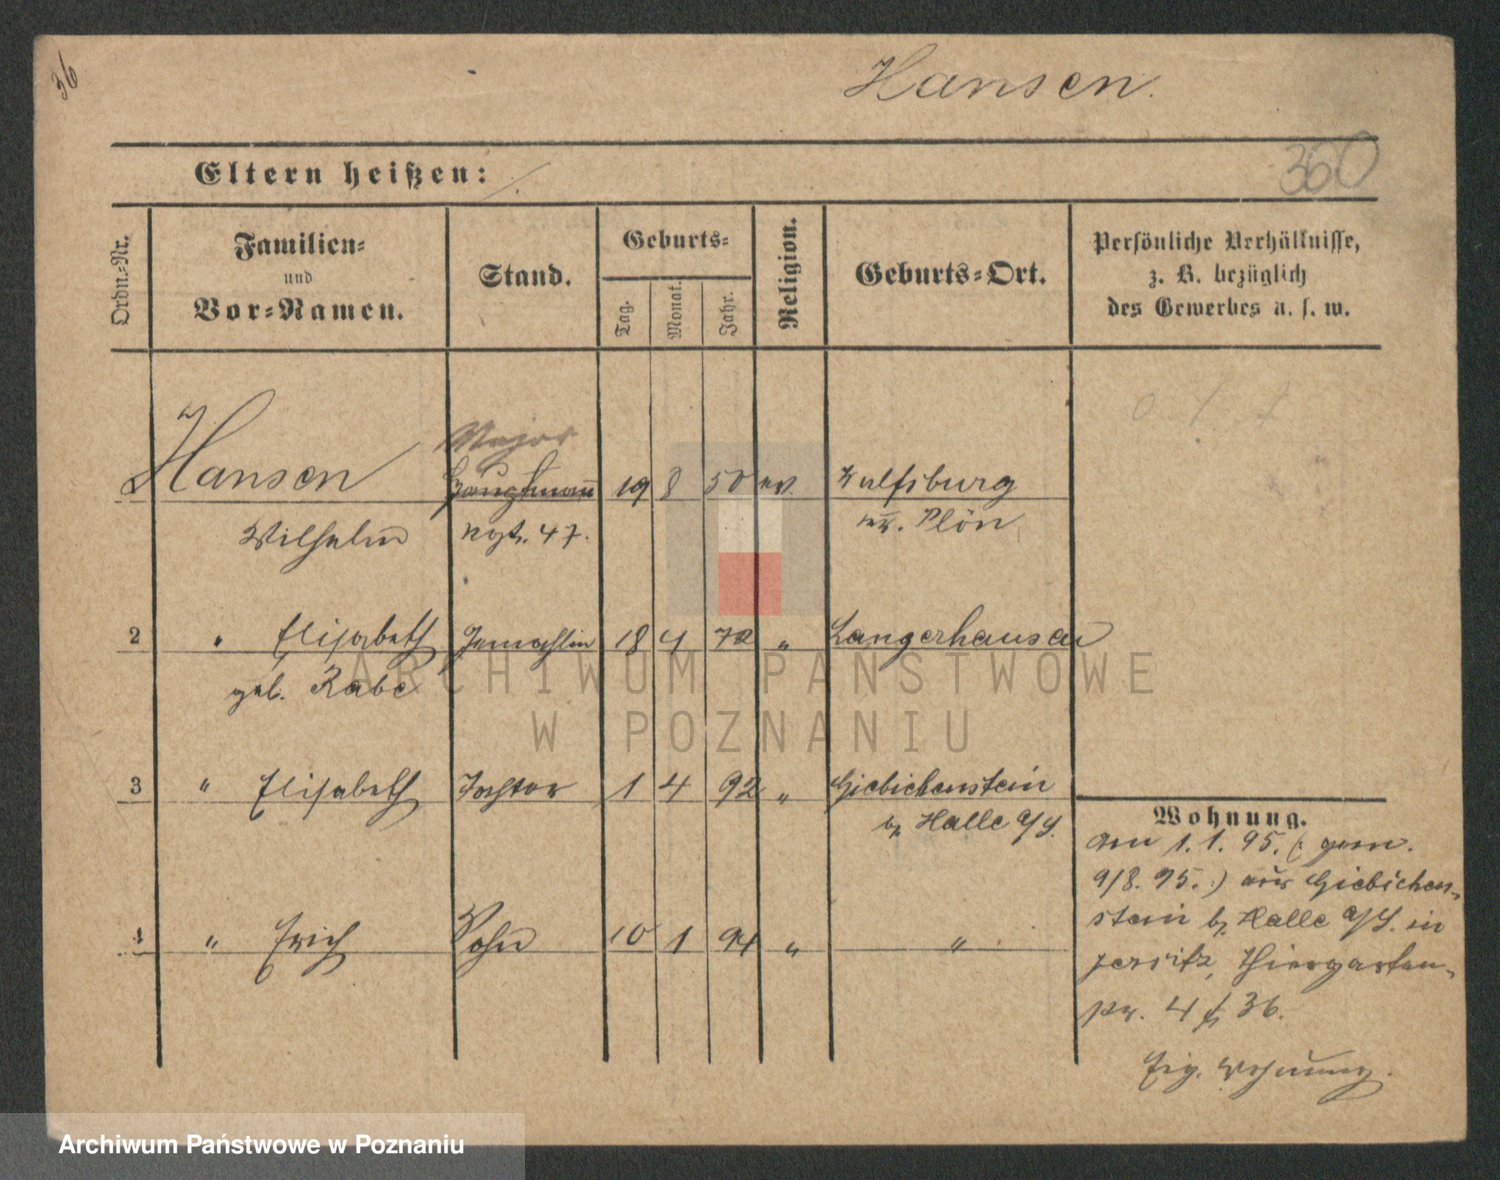 36
Hansen.
Eltern heißen:
360
Ordn.-Nr.
Familien-
und
Vor-Namen.
Stand.
Geburts-
Tag.
Monat.
Jahr.
Religion.
Geburts-Ort.
Persönliche Verhältnisse,
z. B. bezüglich
des Gewerbes u. s. w.
Major
Hansen Hauptmann 19 8 50 ev.
Wilhelm Rgt. 47. Kr. Plön
2 " Elisabeth Gemahlin 18 4 72 " Sangerhausen
geb. Rabe
3 " Elisabeth Tochter 1 4 92 " Giebichenstein
b/ Halle a/S.
4 " Erich Sohn 10 1 94 " "
Wohnung.
Am 1. 1. 95. (: gem.
9/8. 95. :) aus Giebichen-
stein b/ Halle a/S. in
Jersitz, Thiergarten-
str. 4 36.
Eig. Wohnung.
ARCHIWUM PAŃSTWOWE
W POZNANIU
Archiwum Państwowe w Poznaniu